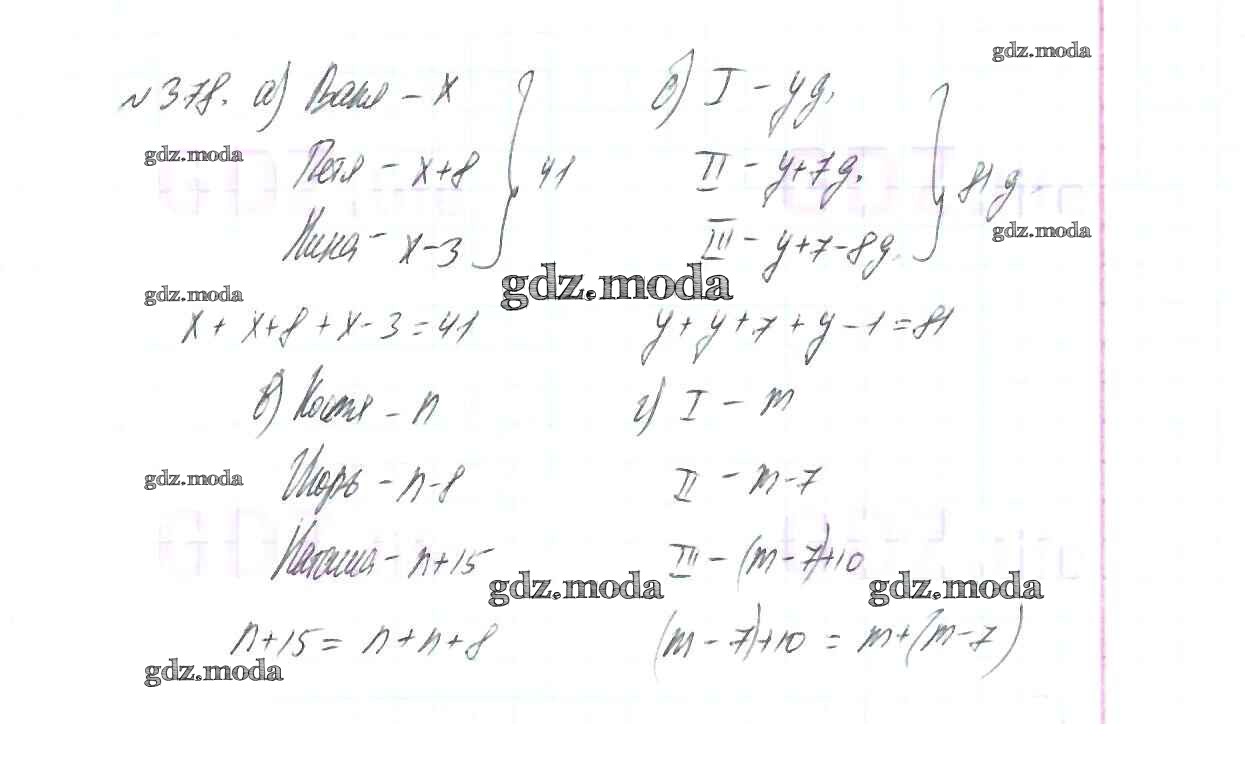 gdz.moda
№378. а) Ваня – x
Петя – x+8
Нина – x–3
41
gdz.moda
gdz.moda
x + x+8 + x–3 = 41
б) I – y д.
II – y+7 д.
III – y+7–8 д.
81 д.
gdz.moda
gdz.moda
y + y + 7 + y – 1 = 81
в) Костя – n
Игорь – n–8
Наташа – n+15
gdz.moda
gdz.moda
n+15 = n+n+8
gdz.moda
г) I – m
II – m–7
III – (m–7)+10
gdz.moda
(m–7)+10 = m+(m–7)